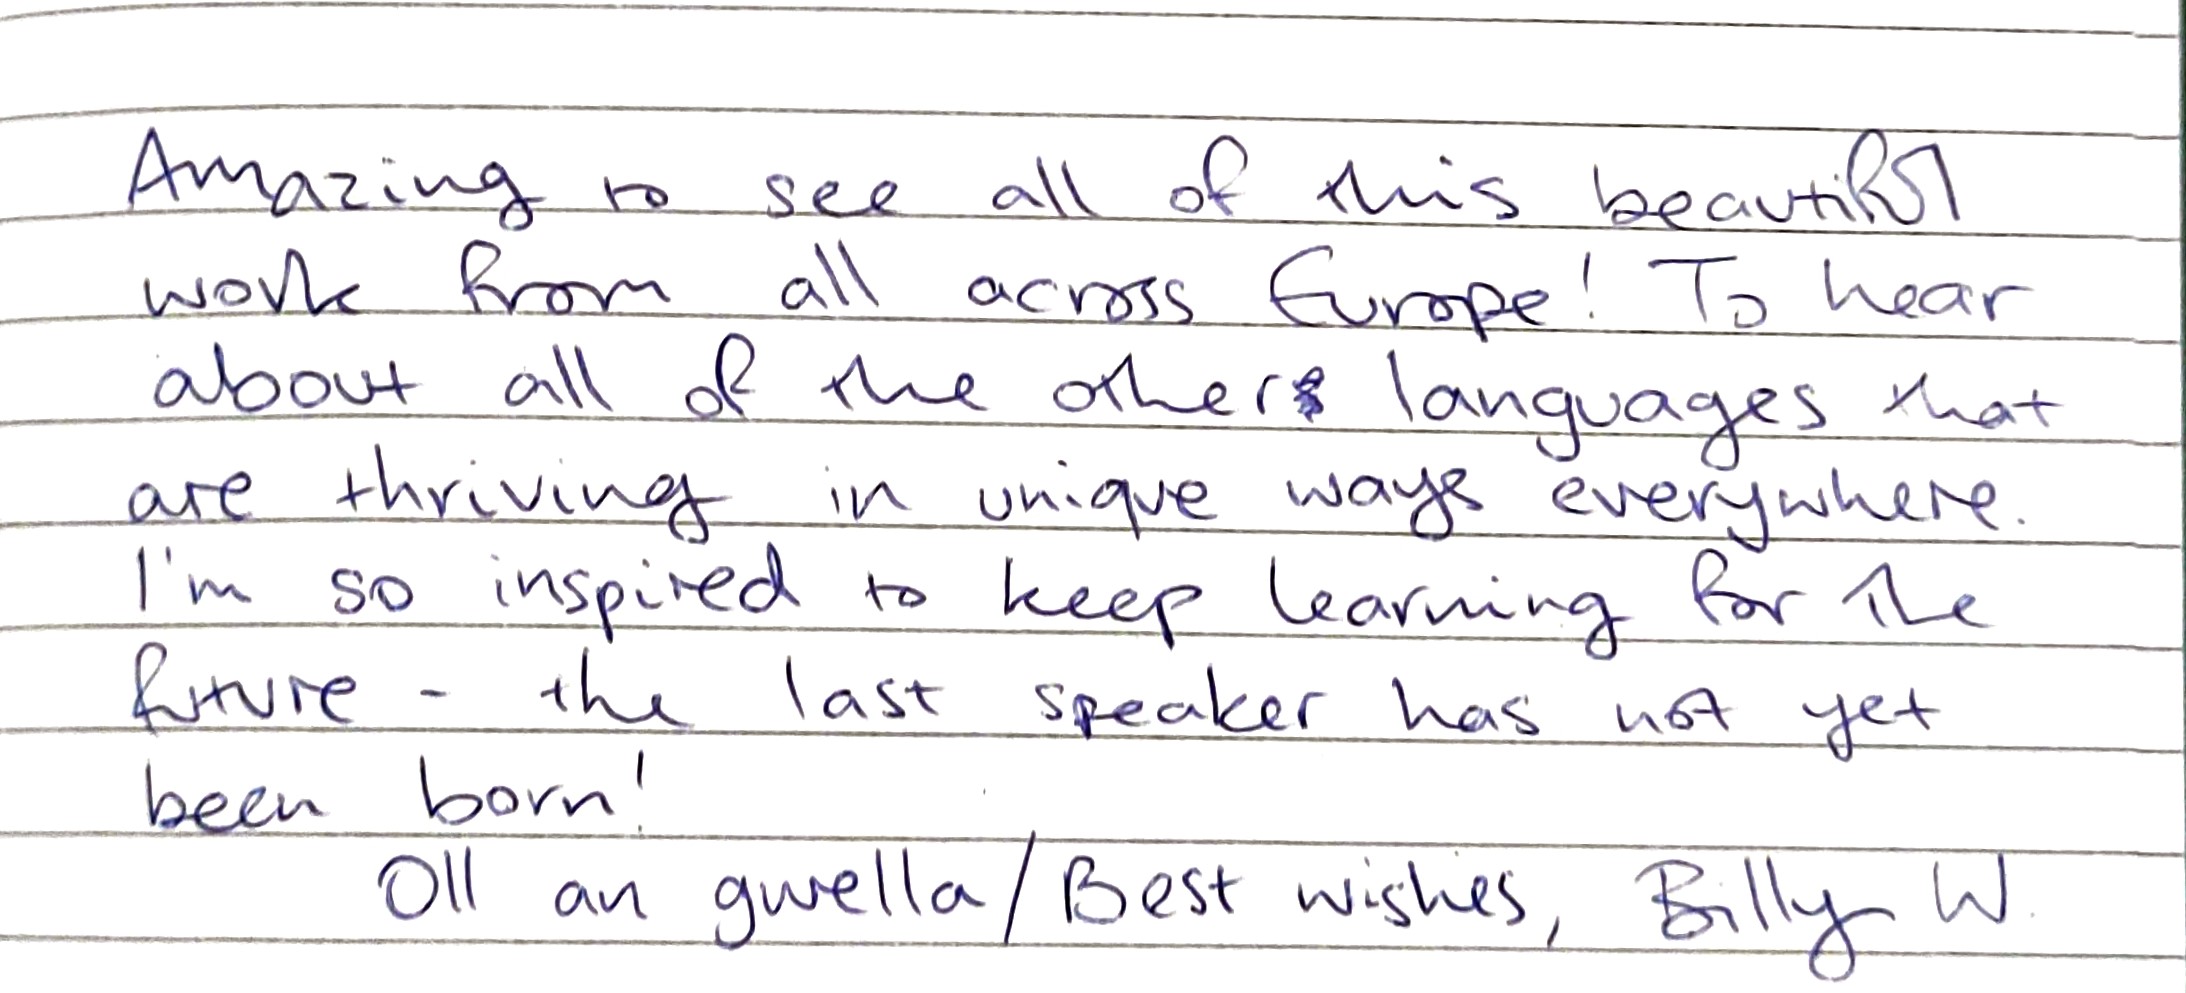 Amazing to see all of this beautiful
work from all across Europe! To hear
about all of the other languages that
are thriving in unique ways everywhere.
I'm so inspired to keep learning for the
future - the last speaker has not yet
been born!
Oll an gwella/Best wishes, Billy W.